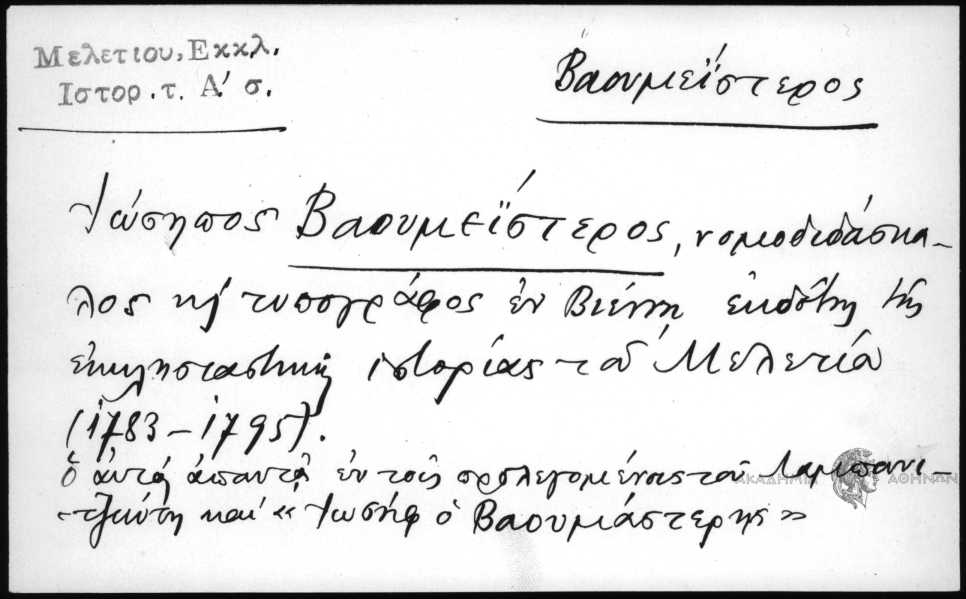 Μελετίου, Εκκλ.
Ιστορ. τ. Α΄ σ.
Βαουμεΐστερος
Ἰώσηπος Βαουμεΐστερος, νομοδιδάσκα-
λος κỳ τυπογράφος ἐν Βιέννῃ ἐκδότης τῆς
ἐκκλησιαστικῆς ἱστορίας τοῦ Μελετίου
(1783-1795).
ὁ αὐτὸς ἀπαντᾷ ἐν τοῖς προλεγομένοις τοῦ Λαμπανι-
τζιώτη καὶ «Ἰωσὴφ ὁ Βαουμάστερης»
ΑΚΑΔΗΜΙΑ ΑΘΗΝΩΝ